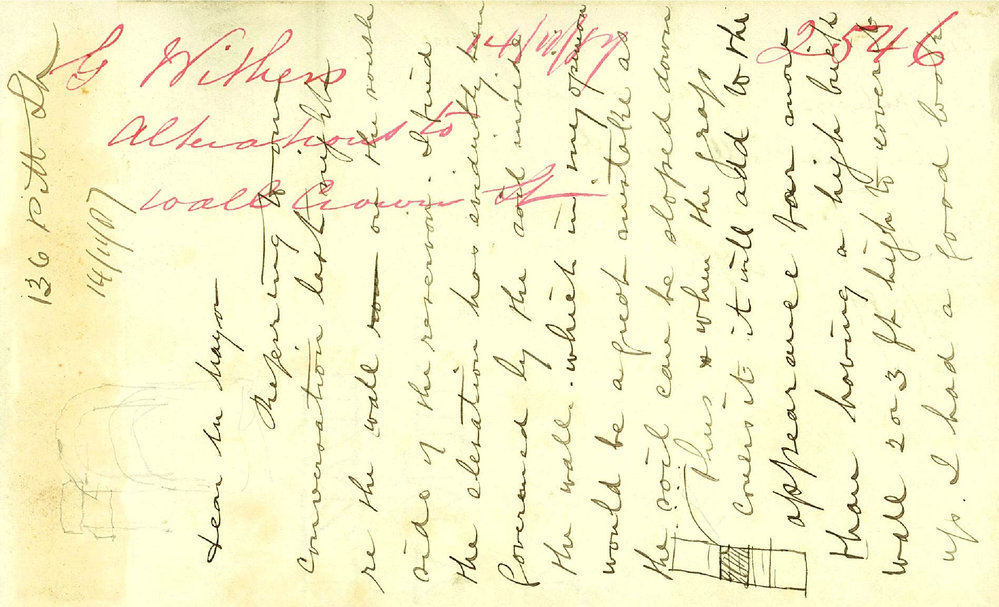 G Withers 14/11/07 2546
Alterations to
wall Crown St
136 Pitt St
14/11/07
Dear Mr Mayor
Referring to our
conversation last night
re the wall on the south
side of the reservoir. I find
the elevation has evidently been
governed by the soil inside
the wall. which in my opinion
would be a great mistake as
the soil can be sloped down
Thus & when the grass
covers it it will add to the
appearance far more
than having a high brick
wall 2 or 3 ft high to cover it
up. I had a good look